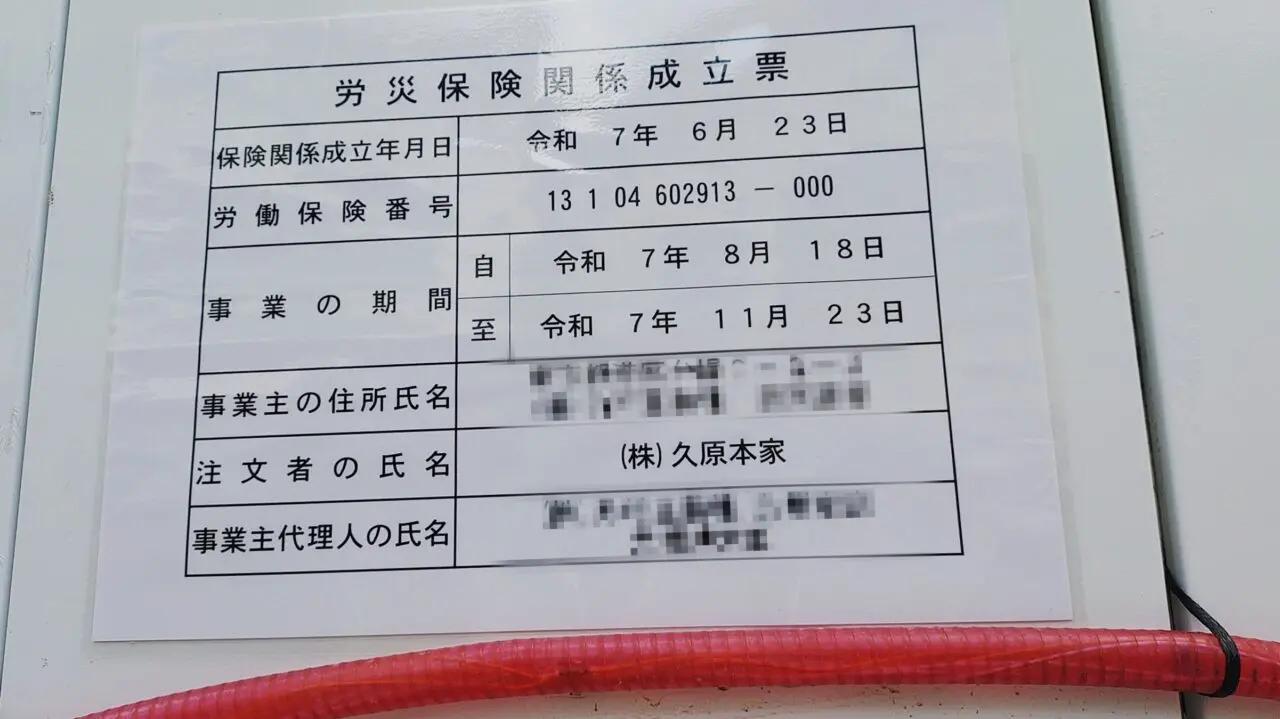 労災保険関係成立票
保険関係成立年月日 令和 7年 6月 23日
労働保険番号 13 1 04 602913 － 000
事業の期間 自 令和 7年 8月 18日
至 令和 7年 11月 23日
事業主の住所氏名
注文者の氏名 (株)久原本家
事業主代理人の氏名